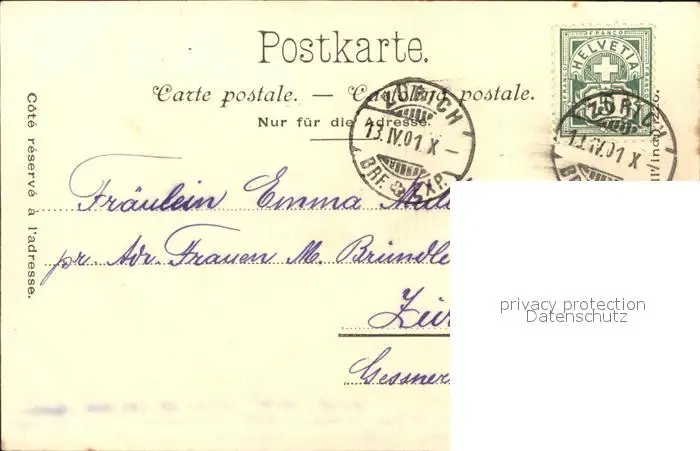 Postkarte.
Carte postale. — Cartolina postale.
Nur für die Adresse.
Côté réservé à l'adresse.
FRANCO
HELVETIA
FRANCO
FRANCO
5
ZÜRICH
13.IV.01 X
BRF. EXP.
ZÜRICH
13.IV.01 X
Fräulein Emma
pr. Adr. Frauen M. Bründle
Zür
Gessner
privacy protection
Datenschutz